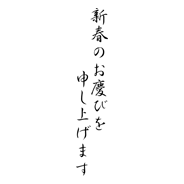 新春のお慶びを
申し上げます